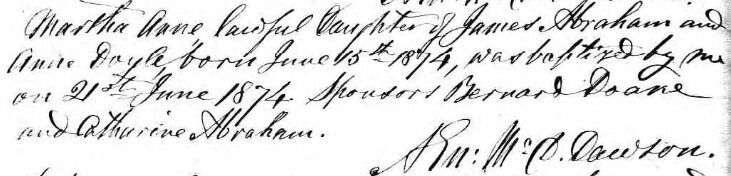 Martha Anne lawful Daughter of James Abraham and
Anne Doyle born June 15th 1874, was baptized by me
on 21st June 1874. Sponsors Bernard Doane
and Catharine Abraham.
Æn: Mc D. Dawson.